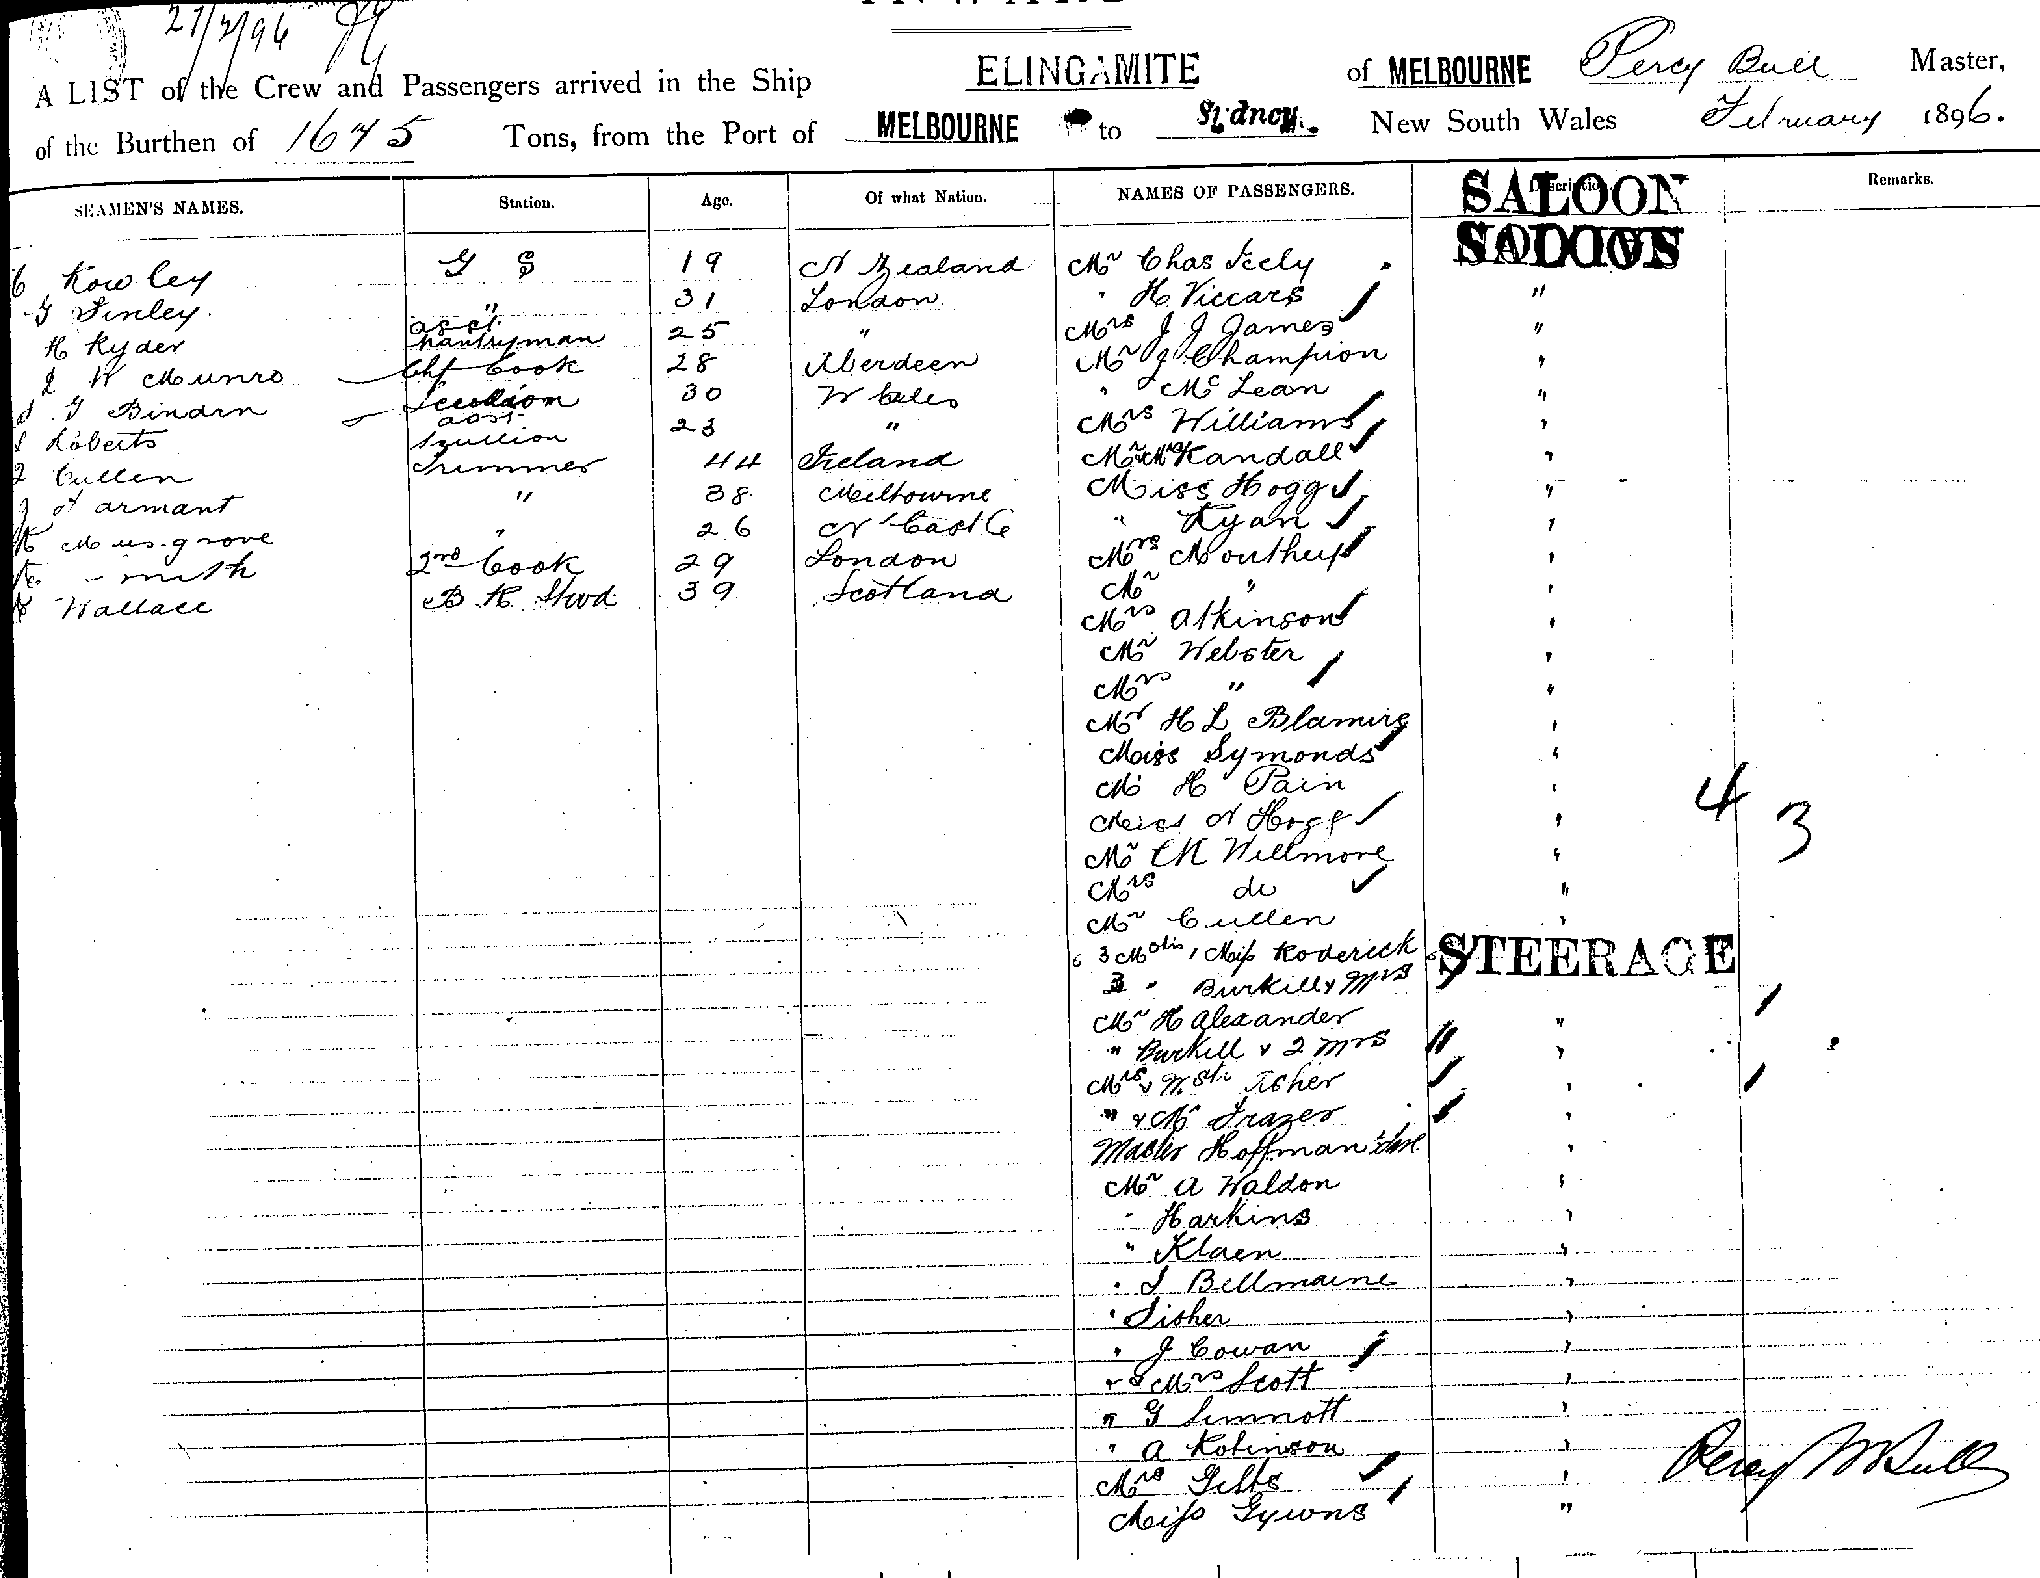 27/2/96
A LIST of the Crew and Passengers arrived in the Ship ELINGAMITE of MELBOURNE Percy Bull Master,
of the Burthen of 1675 Tons, from the Port of MELBOURNE to Sydney. New South Wales February 1896.
SEAMEN'S NAMES. Station. Age. Of what Nation. NAMES OF PASSENGERS. Description Remarks.
SALOON
SALOON
Rowley G S 19 N Zealand Mr Chas Feely
G Finley " 31 London " H Viccars "
H Ryder asst Pantryman 25 " Mrs J J James "
W Munro Chf Cook 28 Aberdeen Mr J Champion "
Bindon Scullion 30 Wales " Mc Lean "
Roberts asst Scullion 23 " Mrs Williams "
Cullen Trimmer 44 Ireland Mr & Mrs Randall "
Narmant " 38 Melbourne Miss Hogg "
Musgrove " 26 N Castle " Ryan "
Smith 2nd Cook 29 London Mrs "
Wallace B R Stwd 39 Scotland Mr " "
Mrs Atkinson "
Mr Webster "
Mrs " "
Mr H L Blamire "
Miss Symonds "
Mr H Pain "
Miss N Hogg "
Mr Willmore "
Mrs do "
Mr Cullen "
4 3
3 Miss Roderick STEERAGE
3 " Burkill & Mrs
Mr H Alexander "
" Burkill & 2 Mrs "
Mrs & Mstr Fisher "
" & Mr Frazer "
Master Hoffman "
Mr A Waldon "
" Harkins "
" Klaen "
" S Bellmaine "
" Fisher "
" J Cowan "
" & Mrs Scott "
" G Simnott "
" A Robinson "
Mrs Gibbs "
Miss Gywns "
Percy W Bull